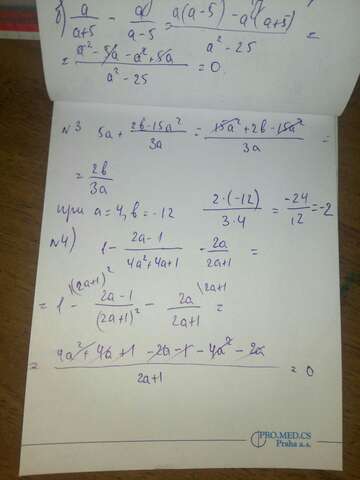 б) a/(a+5) - a/(a-5) = (a(a-5) - a(a+5))/(a²-25) =
= (a² - 5a - a² + 5a)/(a² - 25) = 0
№3 5a + (2в-15a²)/(3a) = (15a² + 2в - 15a²)/(3a) =
= 2в/(3a)
при a = 4, в = -12 (2·(-12))/(3·4) = -24/12 = -2
№4) 1 - (2a-1)/(4a²+4a+1) - 2a/(2a+1) =
= 1\(2a+1)² - (2a-1)/(2a+1)² - 2a/(2a+1)\2a+1 =
= (4a² + 4a + 1 - 2a - 1 - 4a² - 2a)/(2a+1) = 0
PRO.MED.CS
Praha a.s.